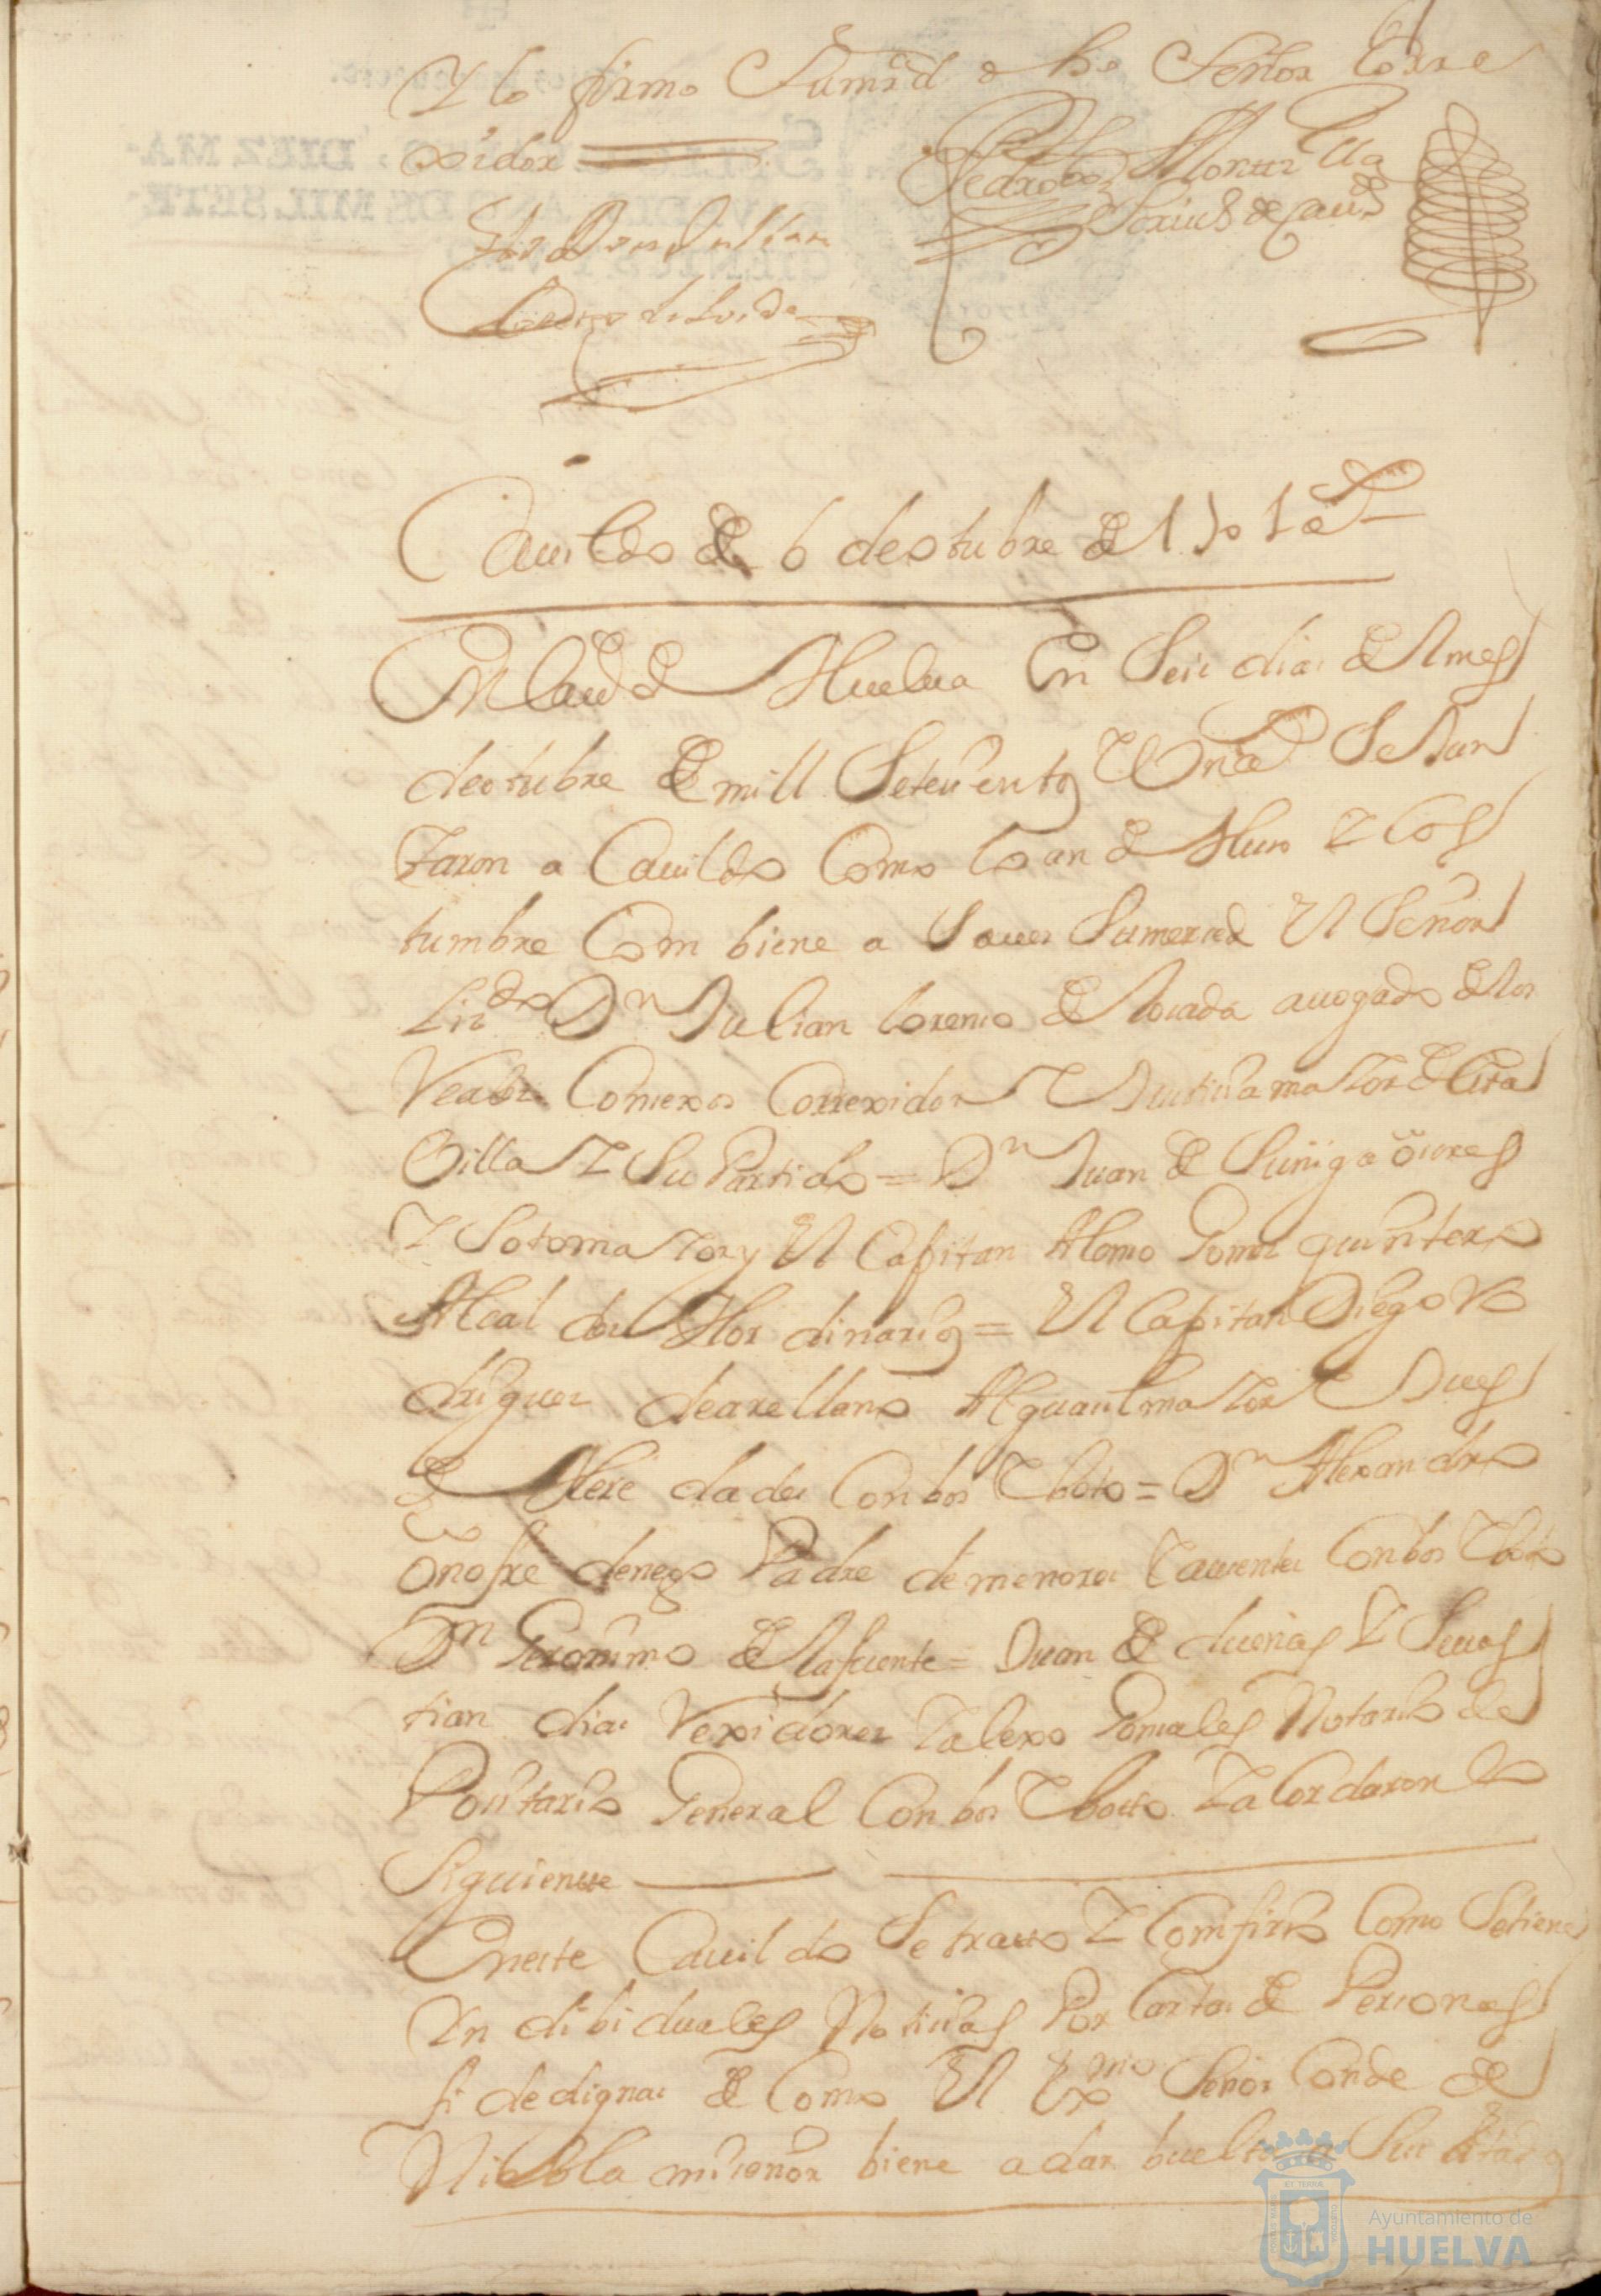 Y lo firmo Sumrd dho Señor Corre
xidor
Pedro Montiel
Scriuº de Cauº
Lizdo Don Julian
Lorenso de Losada
Cauildo de 6 deotubre de 1701 aº
En la uª de Huelua En Seis dias del mes
deotubre de mill Seteçientos Y Vno Se Jun
taron a Cauildo Como lo an de Huso Y Cos
tumbre Com biene a Sauer Sumerced El Señor
Lizdo Dn Julian lorenso de losada auogado de los
Reales Consexos Correxidor Y Justiçia mayor de Esta
Villa Y Su Partido = Dn Juan de Suñiga
Y Sotomayor y El Capitan Alonso Gomes quintero
Alcal des Hor dinarios = El Capitan Diego Ro
drigues dearellano Alguasil mayor Y Jues
de Here dades Con bos Y boto = Dn Alexandro
Onofre denegro Padre demenores Y ausentes Con bos Y boto
Dn Geronimo de la fuente = Juan de dueñas Y Seuas
tian dias Rexidores Y alexo Gonsales Notario de
Positario General Con bos Y botto Y a Cordaron lo
Siguiente
Eneste Cauil do Se tratto Y Comfirio Como Setiene
Yn dibi duales Notiçias Por Cartas de Personas
fi dedignas de Como El Exmo Señor Conde de
Niebla mi señor biene adar buelta a Sus
Ayuntamiento de
HUELVA